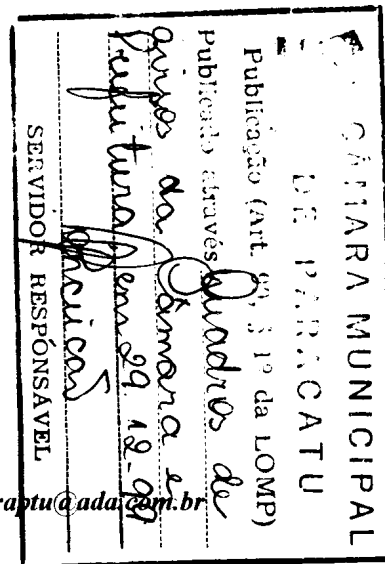 CÂMARA MUNICIPAL
DE PARACATU
Publicação (Art. 69, § 1º da LOMP)
Publicado através Quadros de
avisos da Câmara e
Prefeitura em 29.12.99
SERVIDOR RESPONSÁVEL
raptu@ada.com.br